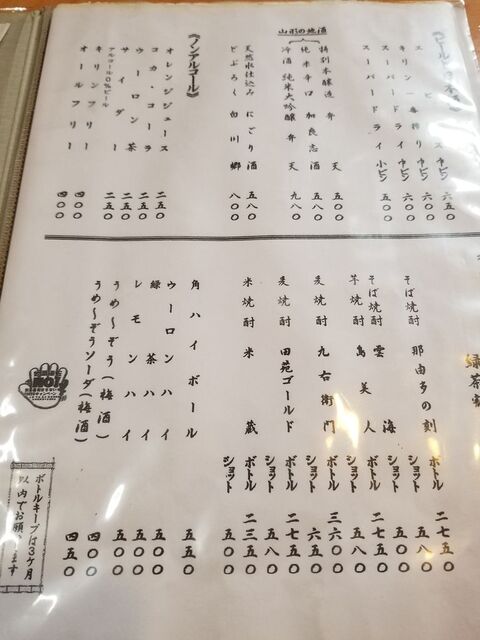 スーパードライ 中ビン 六〇〇
スーパードライ 小ビン 五〇〇
山形の地酒
特別本醸造 弁天 五〇〇
純米辛口 加良志酒
冷酒 純米大吟醸 弁天 九八〇
天然水仕込み にごり酒 五八〇
どぶろく 白川郷 八〇〇
《ノンアルコール》
オレンジジュース 二五〇
コカ・コーラ 二五〇
ウーロン茶 二五〇
サイダー 二五〇
アルコール0%ビール
キリンフリー 四〇〇
オールフリー 四〇〇
緑茶割
そば焼酎 那由多の刻 ボトル 二七五〇
ショット 五八〇
そば焼酎 雲海 ボトル 二七五〇
ショット 五〇〇
芋焼酎 島美人 ボトル 二七五〇
ショット 五八〇
麦焼酎 九右衛門 ボトル 三六〇〇
ショット 六五〇
麦焼酎 田苑ゴールド ボトル 二七五〇
ショット 五八〇
米焼酎 米蔵 ボトル 二三五〇
ショット 五〇〇
角ハイボール 五五〇
ウーロンハイ 五〇〇
緑茶ハイ 五〇〇
レモンハイ 五〇〇
うめ〜ぞう(梅酒) 四五〇
うめ〜ぞうソーダ(梅酒) 四五〇
ボトルキープは3ヶ月
以内でお願います